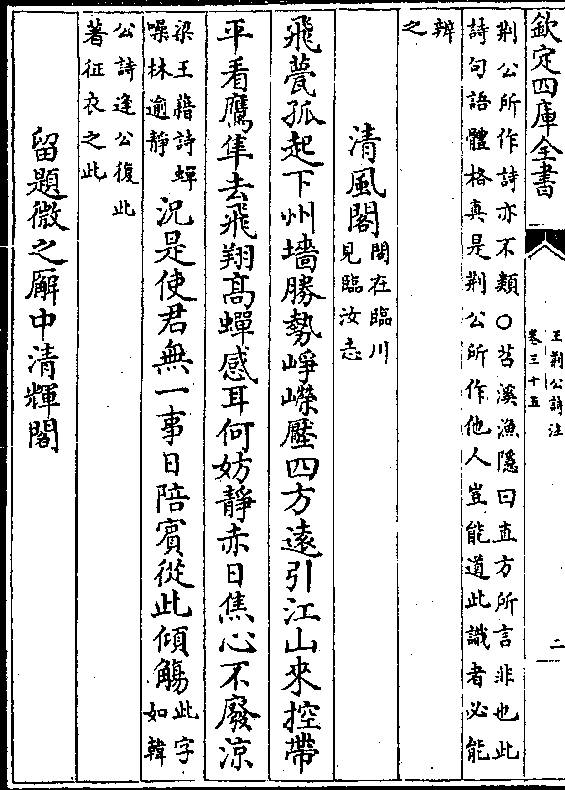 欽定四庫全書
王荊公詩注
卷三十五
二
荆公所作詩亦不類〇苕溪漁隱曰直方所言非也此
詩句語體格真是荆公所作他人豈能道此識者必能
辨
之
清風閣
閣在臨川
見臨汝志
飛甍孤起下州墻勝勢崢嶸壓四方遠引江山來控帶
平看鷹隼去飛翔髙蟬感耳何妨靜赤日焦心不廢涼
梁王藉詩蟬
噪林逾靜
況是使君無一事日陪賓從此傾觴
此字
如韓
公詩逢公復此
著征衣之此
留題微之廨中清輝閣